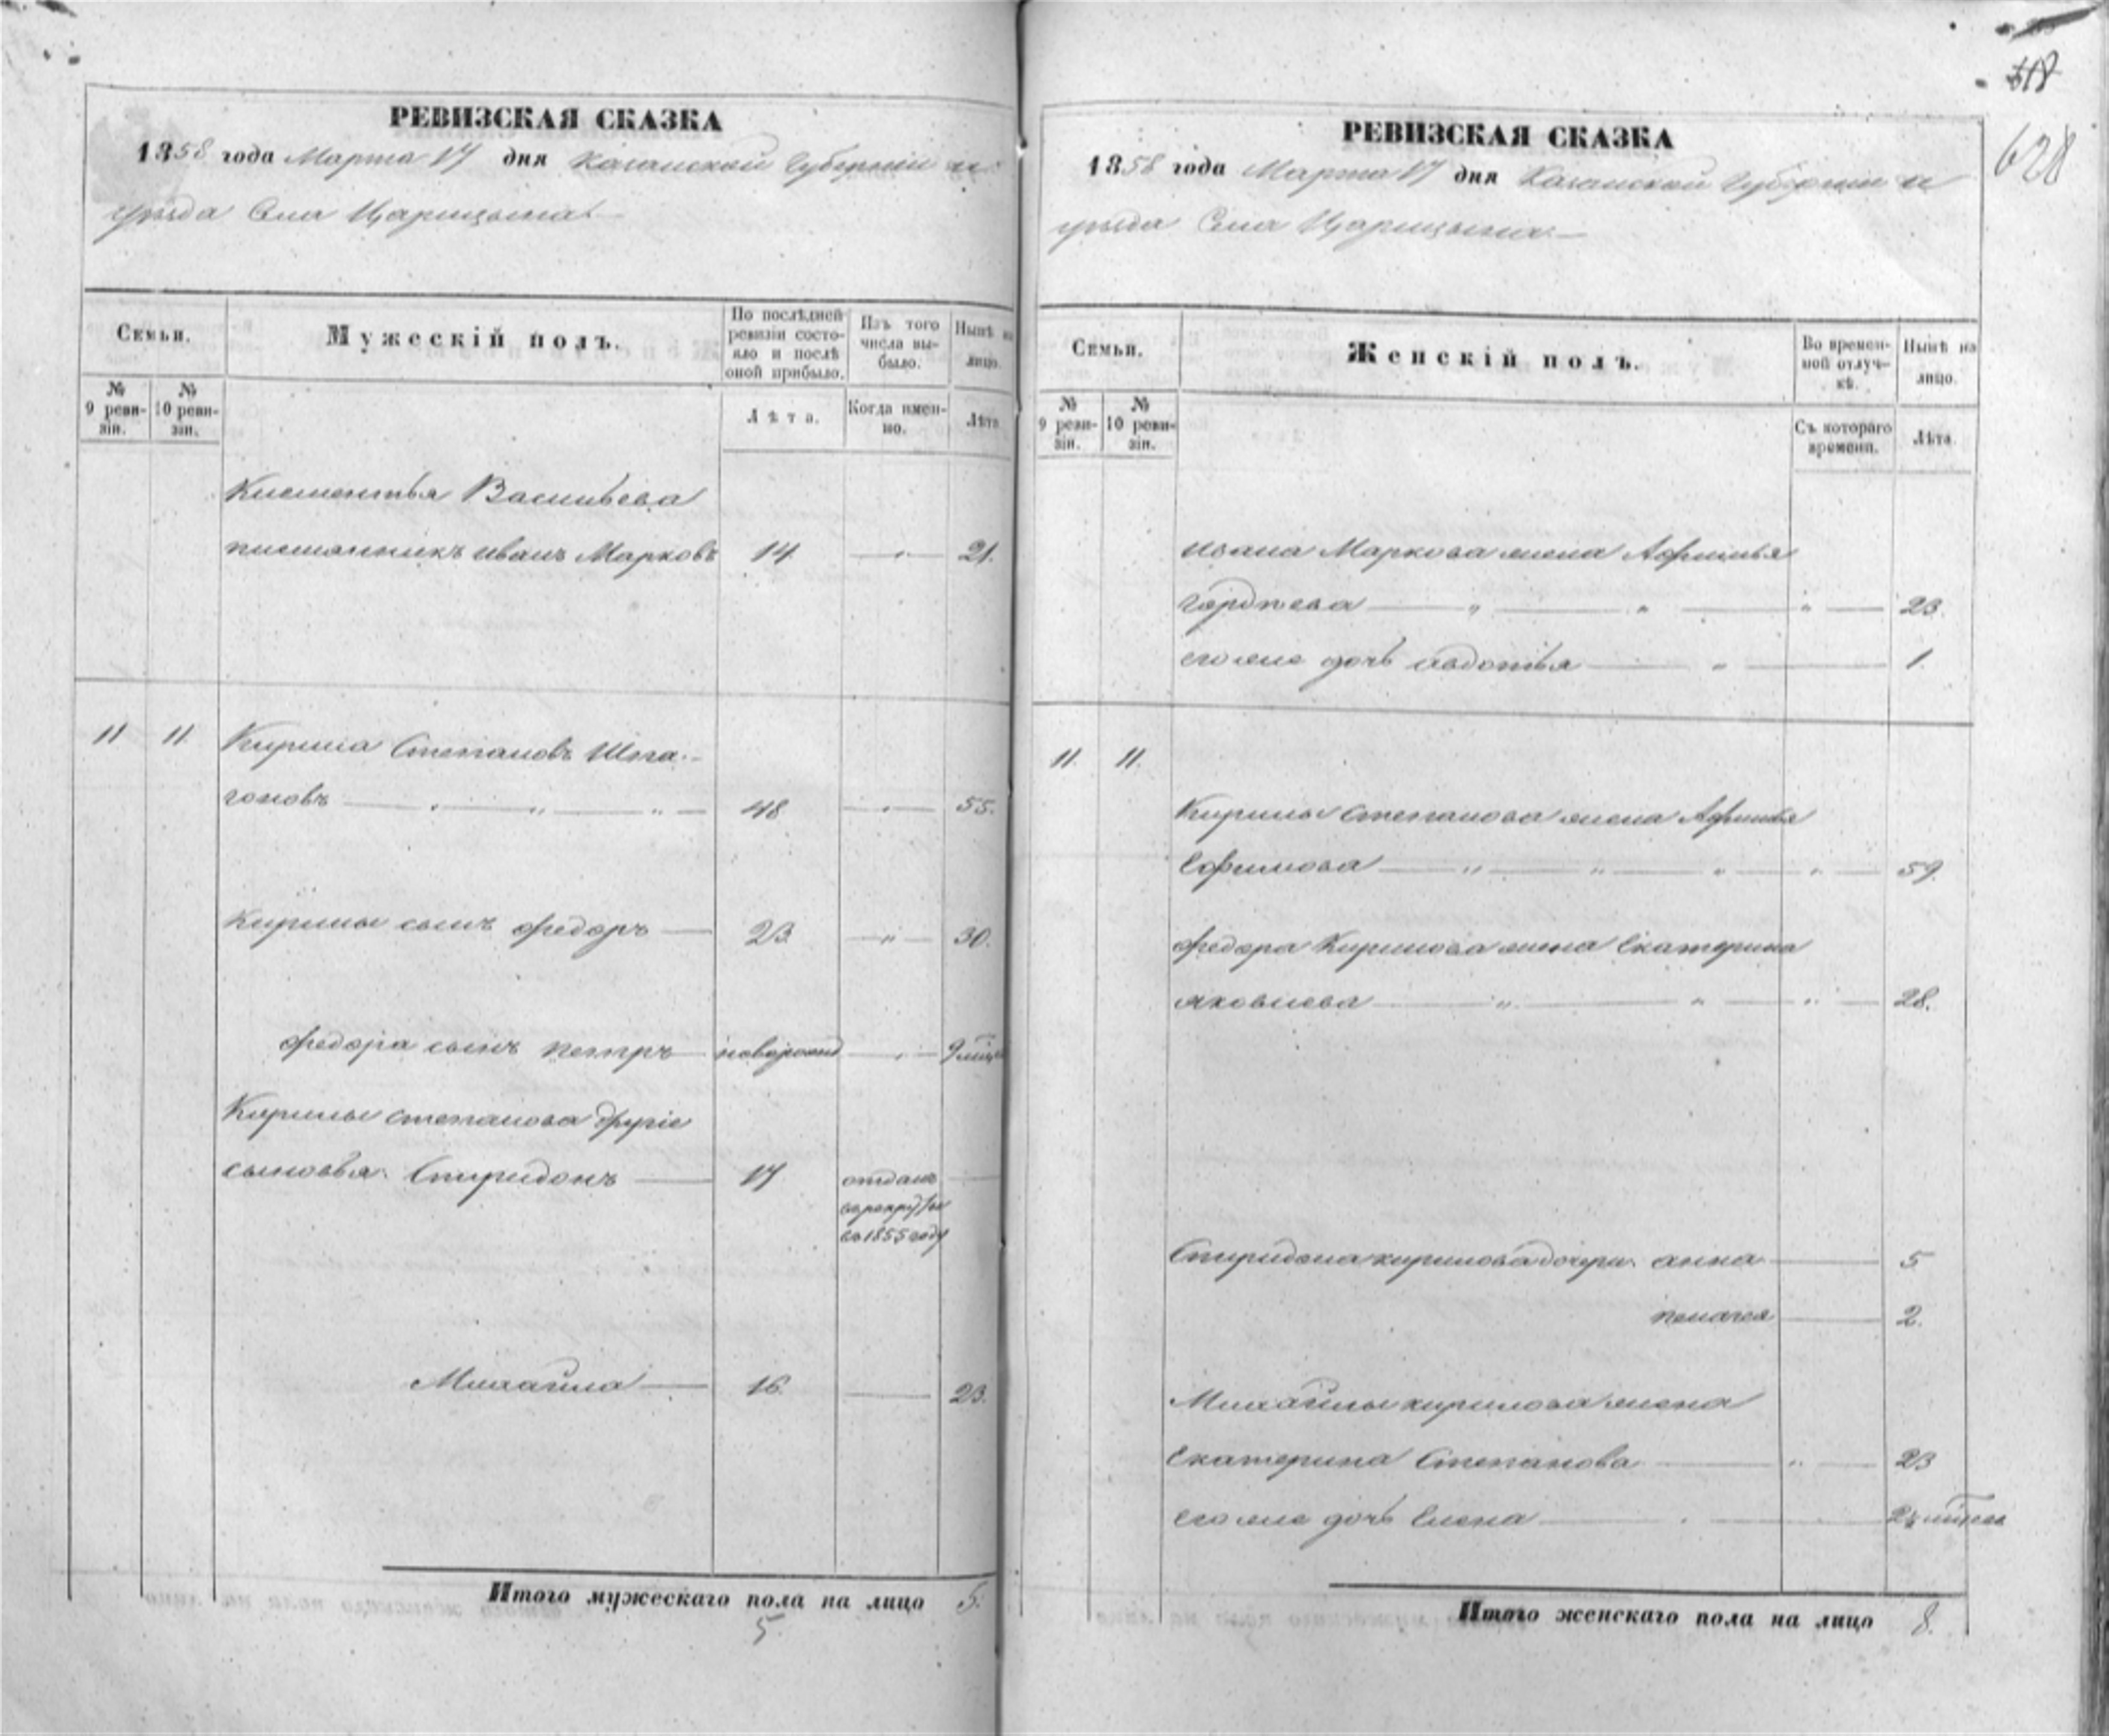 РЕВИЗСКАЯ СКАЗКА
1858 года Марта 17 дня Казанской Губерніи и
уѣзда Села Царицына
Семьи.
Мужескій полъ.
По послѣдней ревизіи состояло и послѣ оной прибыло.
Изъ того числа выбыло.
Нынѣ на лицо.
№ 9 ревизіи.
№ 10 ревизіи.
Лѣта.
Когда именно.
Лѣта
Клементья Васильева
племянникъ иванъ Марковъ 14 21.
11 11. Кирила Степановъ Шога-
гоновъ 48 55.
Кирилы сынъ федоръ 23 30.
федора сынъ петръ новорожд 9 мѣся
Кирилы степанова другіе
сыновья. Спиридонъ 17 отданъ
въ рекруты
въ 1855 году
Михайла 16. 23.
Итого мужескаго пола на лицо 5.
5.
518
628
РЕВИЗСКАЯ СКАЗКА
1858 года Марта 17 дня Казанской Губерніи и
уѣзда Села Царицына
Семьи.
Женскій полъ.
Во временной отлучкѣ.
Нынѣ на лицо.
№ 9 ревизіи.
№ 10 ревизіи.
Съ котораго времени.
Лѣта.
ивана Маркова жена Афимья
Гордѣева 23.
его же дочь авдотья 1.
11. 11.
Кирилы степанова жена Афимья
Ефимова 59.
федора Кирилова жена Екатерина
яковлева 28.
Спиридона кирилова дочери. анна 5
пелагея 2.
Михайлы кирилова жена
Екатерина Степанова 23
его же дочь Елена
Итого женскаго пола на лицо 8.